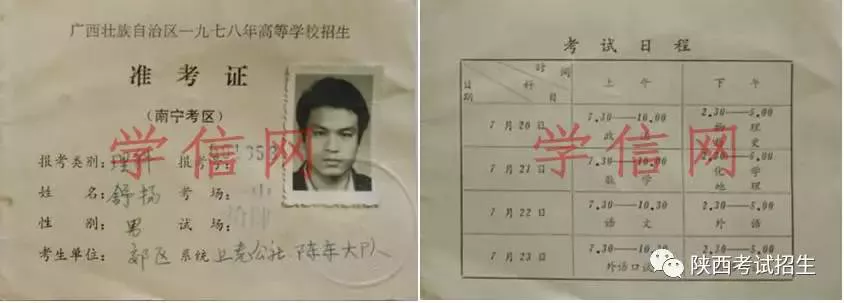 广西壮族自治区一九七八年高等学校招生
准考证
(南宁考区)
学信网
报考类别:理科 报考号:
姓名:舒扬 考场:
性别:男 试场:
考生单位:郊区系统 公社 陈东大队
考试日程
学信网
时间
科目
日期
上午
下午
7月20日
7.30——10.00
政治
2.30——5.00
物理
历史
7月21日
7.30——10.30
数学
2.30——5.00
化学
地理
7月22日
7.30——10.30
语文
2.30——5.00
外语
7月23日
7.30——10.30
外语口试
2.30——5.00
陕西考试招生